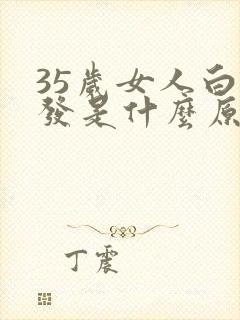 35歲女人白
發是什麼原
丁震